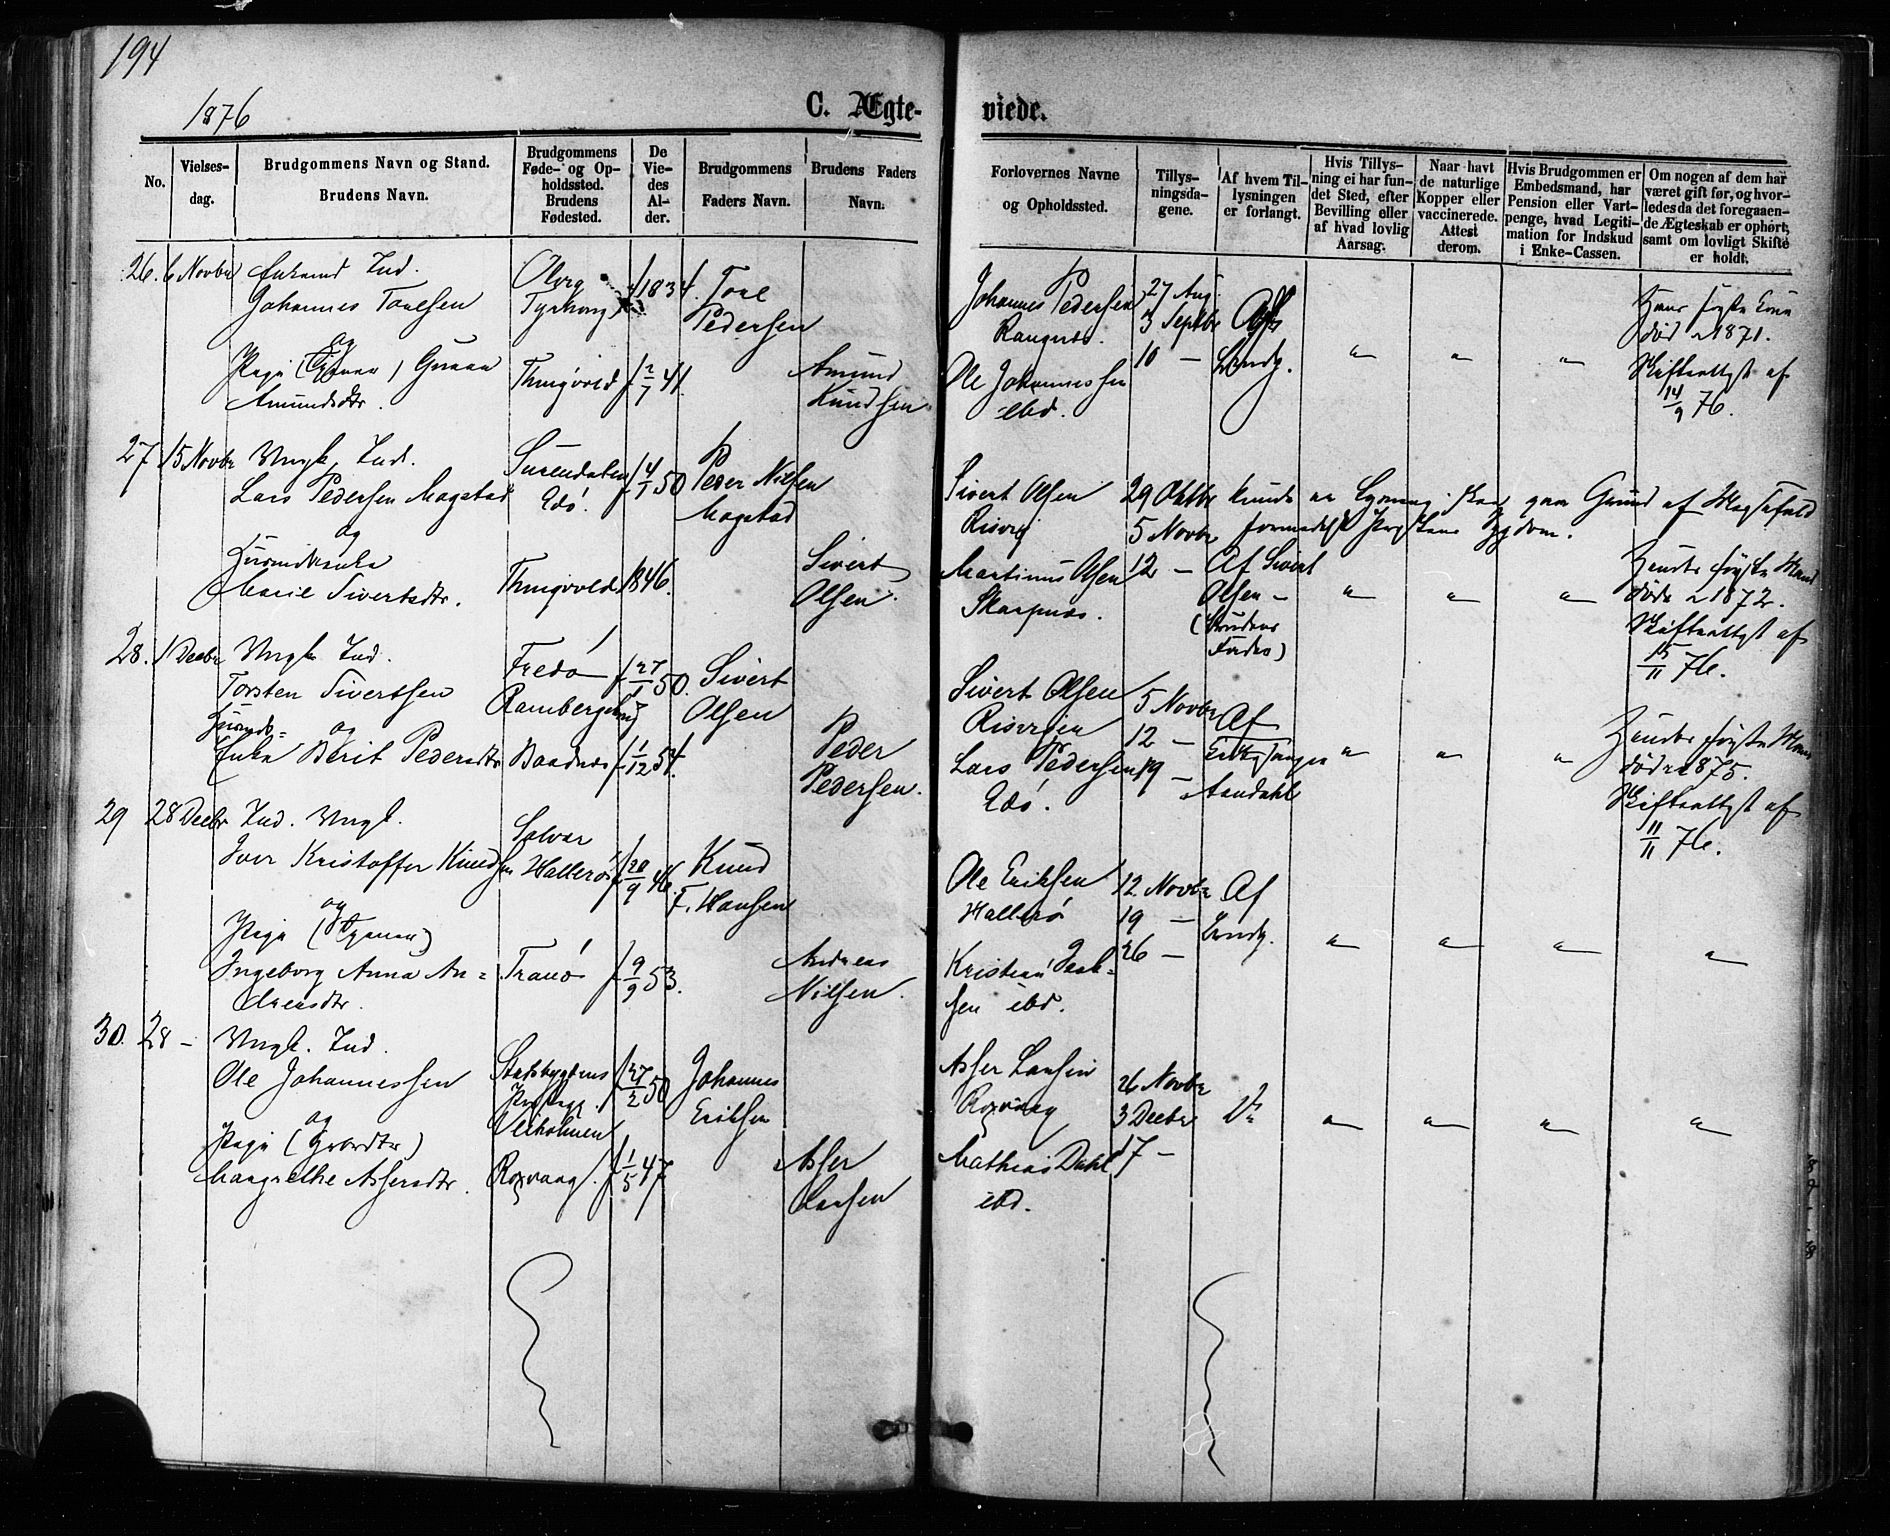 194
1876
C. Ægte-
viede.
No.
Vielses-
dag.
Brudgommens Navn og Stand.
Brudens Navn.
Brudgommens
Føde- og Op-
holdssted.
Brudens
Fødested.
De
Vie-
des
Al-
der.
Brudgommens
Faders Navn.
Brudens Faders
Navn.
Forlovernes Navne
og Opholdssted.
Tillys-
ningsda-
gene.
Af hvem Til-
lysningen
er forlangt.
Hvis Tillys-
ning ei har fun-
det Sted, efter
Bevilling eller
af hvad lovlig
Aarsag.
Naar havt
de naturlige
Kopper eller
vaccinerede.
Attest
derom.
Hvis Brudgommen er
Embedsmand, har
Pension eller Vart-
penge, hvad Legiti-
mation for Indskud
i Enke-Cassen.
Om nogen af dem har
været gift før, og hvor-
ledes da det foregaaen-
de Ægteskab er ophørt,
samt om lovligt Skifte
er holdt.
26. 6 Novbr Enkemd Ind.
Johannes Toresen
og
Pige
Amundsdtr.
Tyrhoug
Thingvold
f 1834.
f 2/7 41.
Tore
Pedersen
Amund
Knudsen
Johannes Pedersen
Ole Johannessen
ibd.
27 Aug.
3 Septbr
10 —
Af
Brudg.
" " "
Hans første Kone
død 1871.
Skifteattest af
14/9 76.
27 15 Novbr Ungk. Ind.
Lars Pedersen Magstad
og
Marie Sivertsdtr.
Surendalen
Edø.
Thingvold
f 4/1 50
1846.
Peder Nilsen
Magstad
Sivert
Olsen
Sivert Olsen
Martinus Olsen
29 Oktbr
5 Novbr
12 —
Grund af
formedelst Præstens Sygdom.
Af Sivert
Olsen —
(Brudens
Fader)
" " "
Hendes første Mand
døde 1872.
Skifteattest af
15/11 76.
28. 1 Decbr Ungk. Ind.
Torsten Sivertsen
og
Enke Berit Pedersdtr
Fredø
Baadnes
f 27/1 50.
f 1/12 54.
Sivert
Olsen
Peder
Pedersen.
Sivert Olsen
Lars Pedersen
Edø.
5 Novbr
12 —
19 —
Af
" " "
Hendes første Mand
døde 1875.
Skifteattest af
11/11 76.
29 28 Decbr Ind. Ungk.
Iver Kristoffer Knudsen
og
Pige
Ingeborg Anna An=
dreasdtr.
Hallerø
Tranø
f 20/9 46.
f 9/9 53.
Knud
F. Hansen
Andreas
Nilsen.
Ole Eriksen
Hallerø
Kristian
sen ibd.
12 Novbr
19 —
26 —
Af
Brudg.
" " " "
30. 28 — Ungk. Ind.
Ole Johannessen
og
Pige
Maagrethe Assersdtr.
Stadsbygdens
Præstegj.
Veiholmen
Roxvaag.
f 27/2 50
f 1/5 47
Johannes
Eriksen
Asser
Larsen
Asser Larsen
Roxvaag
Mathias Dahl
ibd.
26 Novbr
3 Decbr
17 —
Do
" " " "